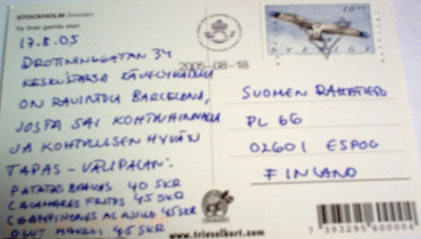 STOCKHOLM Sweden
Vy över gamla stan
17.8.05
DROTTNINGGATAN 34
KESKUSTASSA KÄVELYKADUN
ON RAVINTOLA BARCELONA,
JOSTA SAI KOHTUUHINNALLA
JA KOHTUULLISEN HYVÄN
TAPAS - VÄLIPALAN:
PATATAS BRAVAS 40 SKR
CALAMARES FRITOS 45 SKR
CHAMPINONES AL AJILLO 45 SKR
OLUT 45 SKR
2005-08-18
SVERIGE
SUOMEN
PL 66
02601 ESPOO
FINLAND
www.trieselkort.com
7 393295 600004